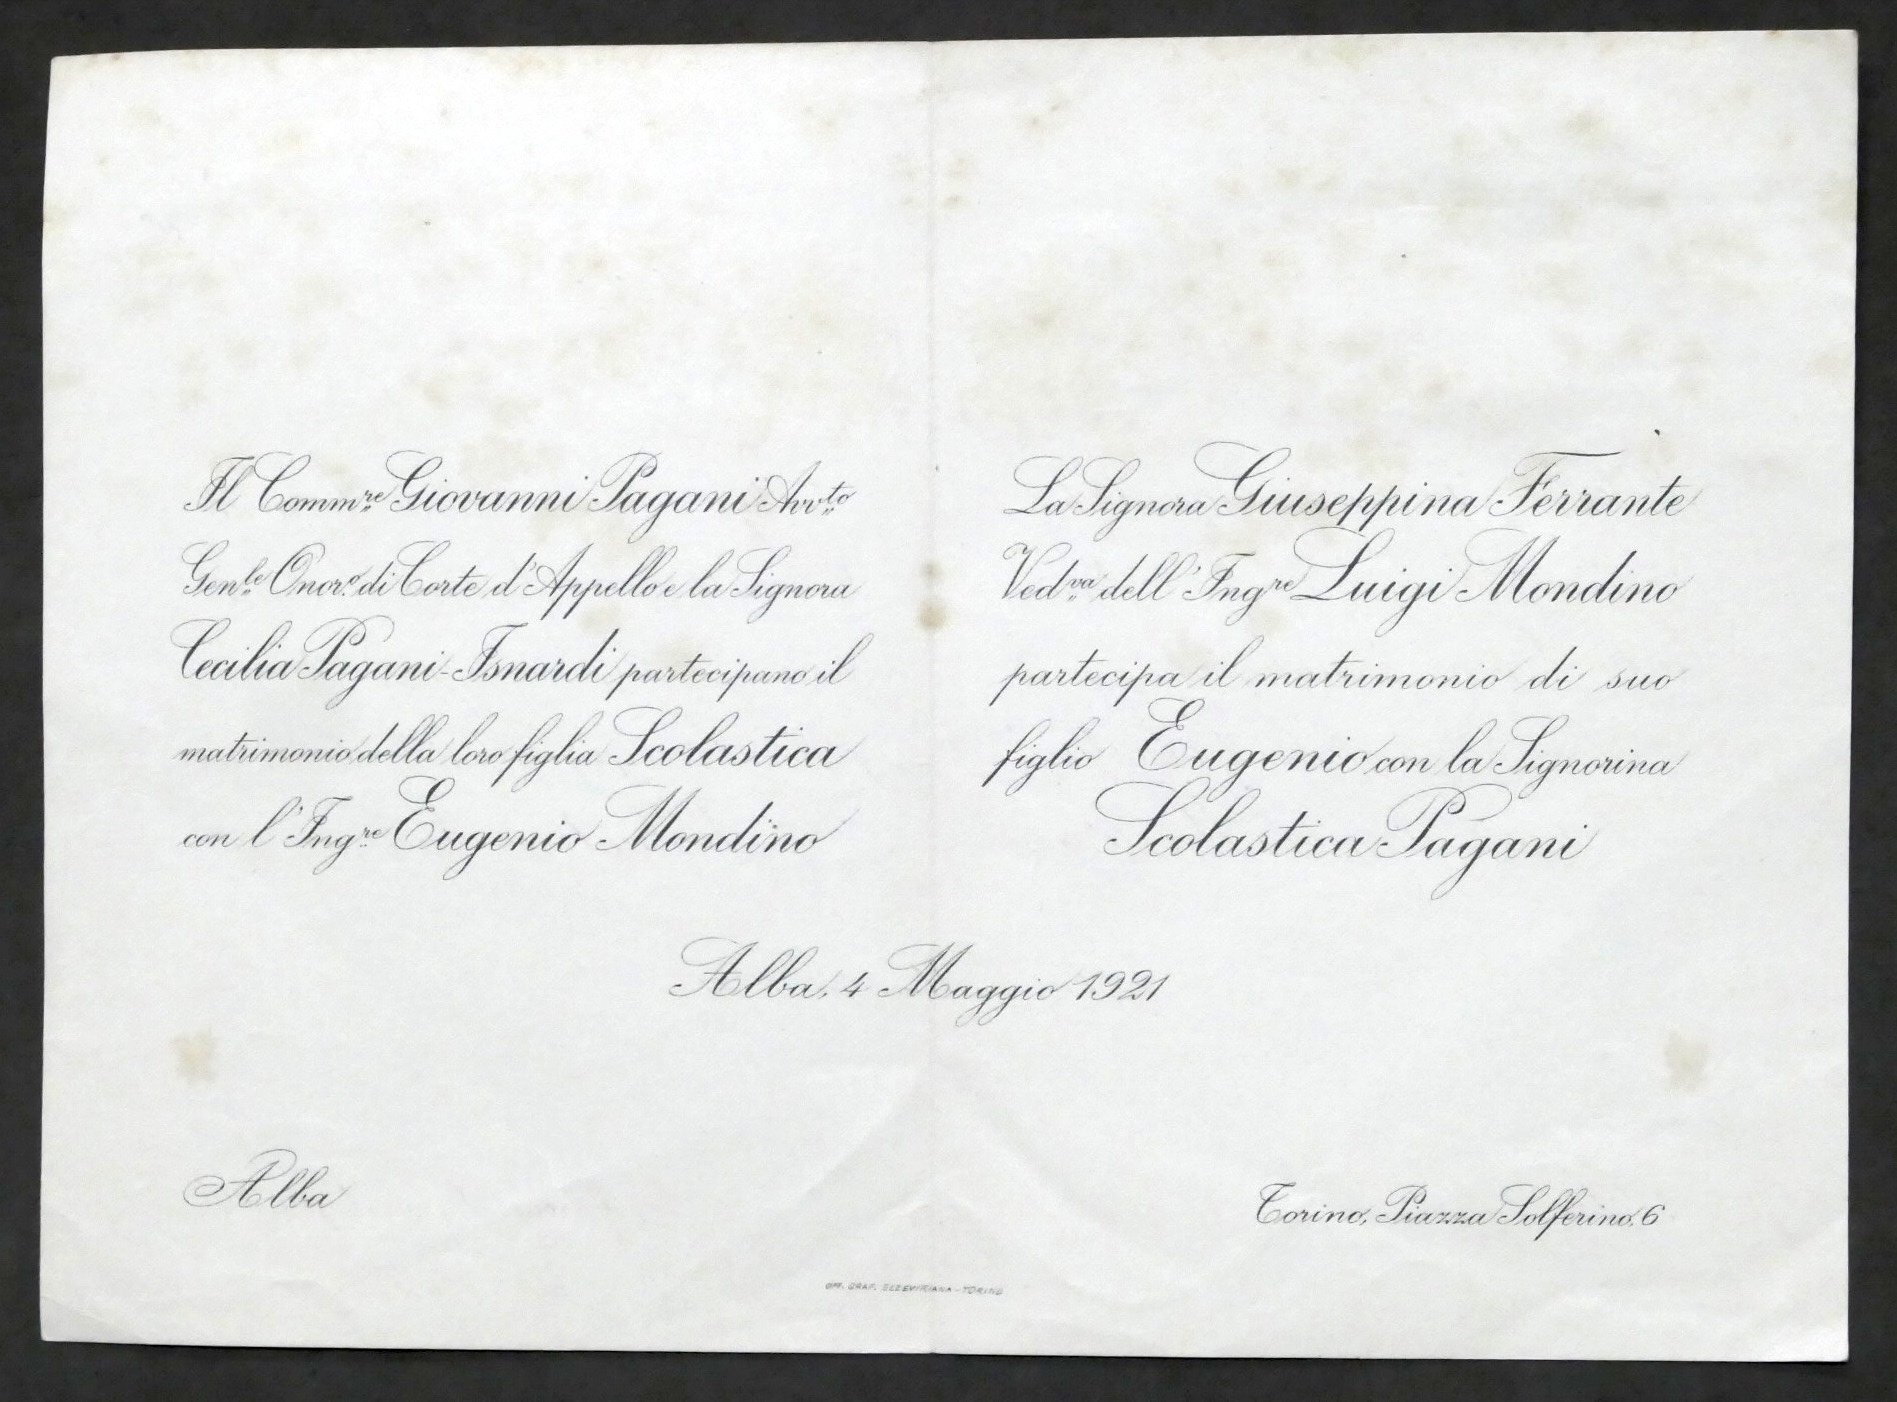 Il Comm.re Giovanni Pagani Avv.to
Gen.le Onor.o di Corte d'Appello e la Signora
Cecilia Pagani-Isnardi partecipano il
matrimonio della loro figlia Scolastica
con l'Ing.re Eugenio Mondino
La Signora Giuseppina Ferrante
Ved.va dell'Ing.re Luigi Mondino
partecipa il matrimonio di suo
figlio Eugenio con la Signorina
Scolastica Pagani
Alba, 4 Maggio 1921
Alba
Torino, Piazza Solferino, 6
OFF. GRAF. - TORINO